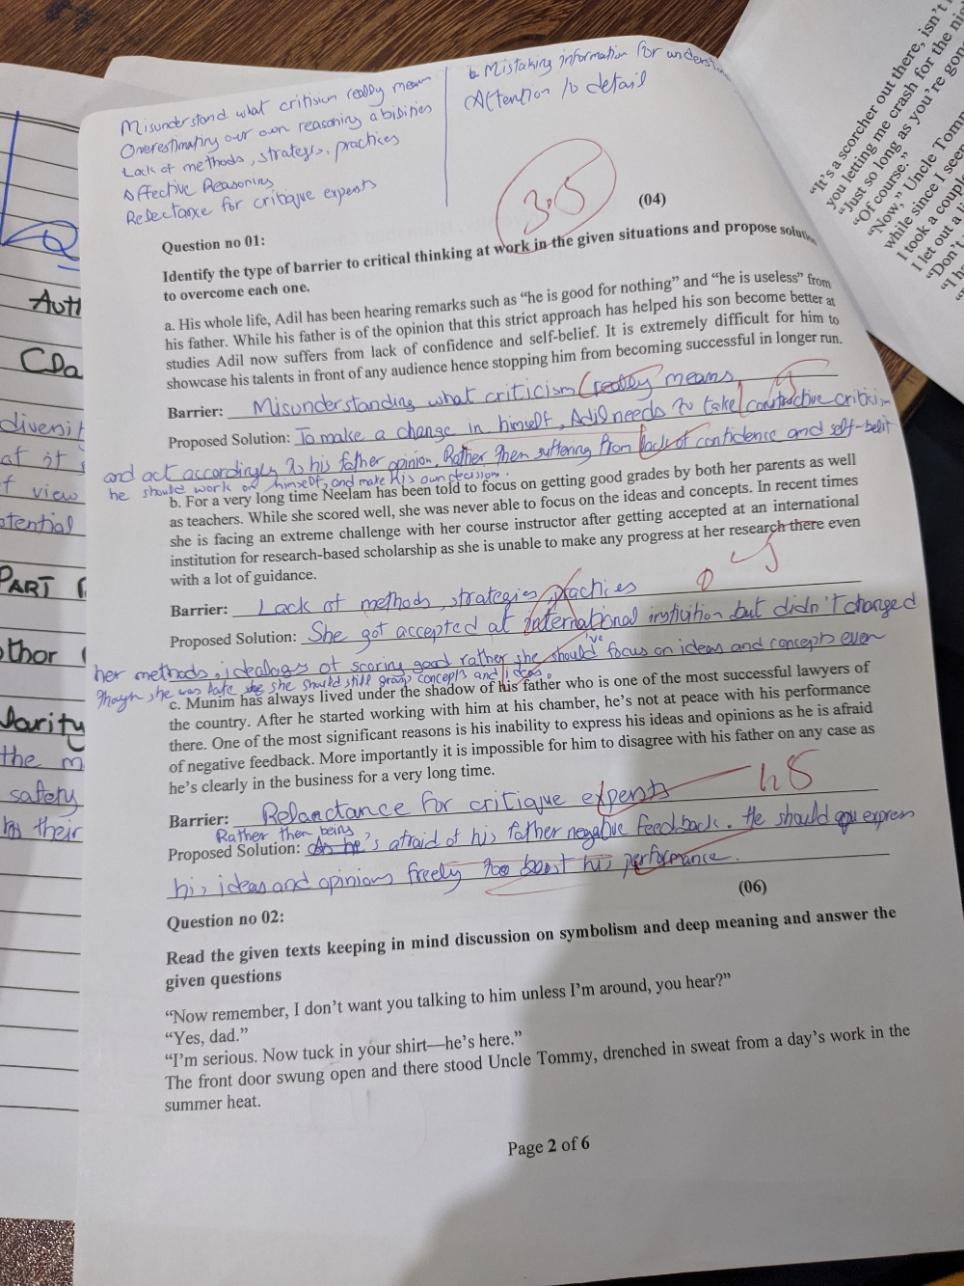 Misunderstand what criticism really mean
Overestimating our own reasoning abilities
Lack of methods, strategies, practices
Affective Reasoning
Relectance for critique experts
Mistaking information for
Attention to detail
3.5
(04)
Question no 01:
Identify the type of barrier to critical thinking at work in the given situations and propose
to overcome each one.
a. His whole life, Adil has been hearing remarks such as “he is good for nothing” and “he is useless” from
his father. While his father is of the opinion that this strict approach has helped his son become better at
studies Adil now suffers from lack of confidence and self-belief. It is extremely difficult for him to
showcase his talents in front of any audience hence stopping him from becoming successful in longer run.
Barrier: Misunderstanding what criticism really means
Proposed Solution: To make a change in himself, Adil needs to take constructive
and act accordingly to his father opinion. Rather then suffering from lack of confidence and self-
he should work on himself, and make his own decision.
b. For a very long time Neelam has been told to focus on getting good grades by both her parents as well
as teachers. While she scored well, she was never able to focus on the ideas and concepts. In recent times
she is facing an extreme challenge with her course instructor after getting accepted at an international
institution for research-based scholarship as she is unable to make any progress at her research there even
with a lot of guidance.
Barrier: Lack of methods, strategies, practices
Proposed Solution: She got accepted at international but didn't changed
her methods, of scoring good rather she should focus on ideas and concepts even
though, she was she should still concepts and ideas.
c. Munim has always lived under the shadow of his father who is one of the most successful lawyers of
the country. After he started working with him at his chamber, he’s not at peace with his performance
there. One of the most significant reasons is his inability to express his ideas and opinions as he is afraid
of negative feedback. More importantly it is impossible for him to disagree with his father on any case as
he’s clearly in the business for a very long time.
Barrier: Relactance for critique experts
Rather then being
Proposed Solution: afraid of his father negative feedback. He should express
his ideas and opinions freely boost his performance.
(06)
Question no 02:
Read the given texts keeping in mind discussion on symbolism and deep meaning and answer the
given questions
“Now remember, I don’t want you talking to him unless I’m around, you hear?”
“Yes, dad.”
“I’m serious. Now tuck in your shirt—he’s here.”
The front door swung open and there stood Uncle Tommy, drenched in sweat from a day’s work in the
summer heat.
Page 2 of 6
“It’s a scorcher out there, isn’t
you letting me crash for the
“Just so long as you’re
“Of course.”
“Now,” Uncle
while since I
I took a
I let out a
“Don’t
CDa
PART
the
safety
their